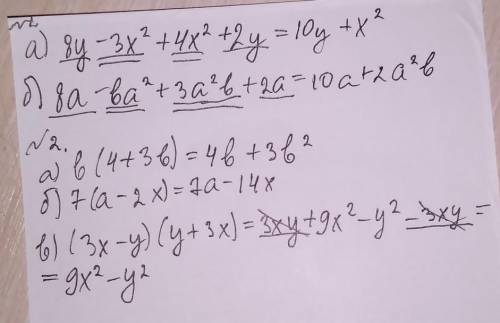 №1.
а) 8y - 3x² + 4x² + 2y = 10y + x²
б) 8a - вa² + 3a²в + 2a = 10a + 2a²в
№2.
а) в(4+3в) = 4в + 3в²
б) 7(a - 2x) = 7a - 14x
в) (3x - y)(y + 3x) = 3xy + 9x² - y² - 3xy =
= 9x² - y²